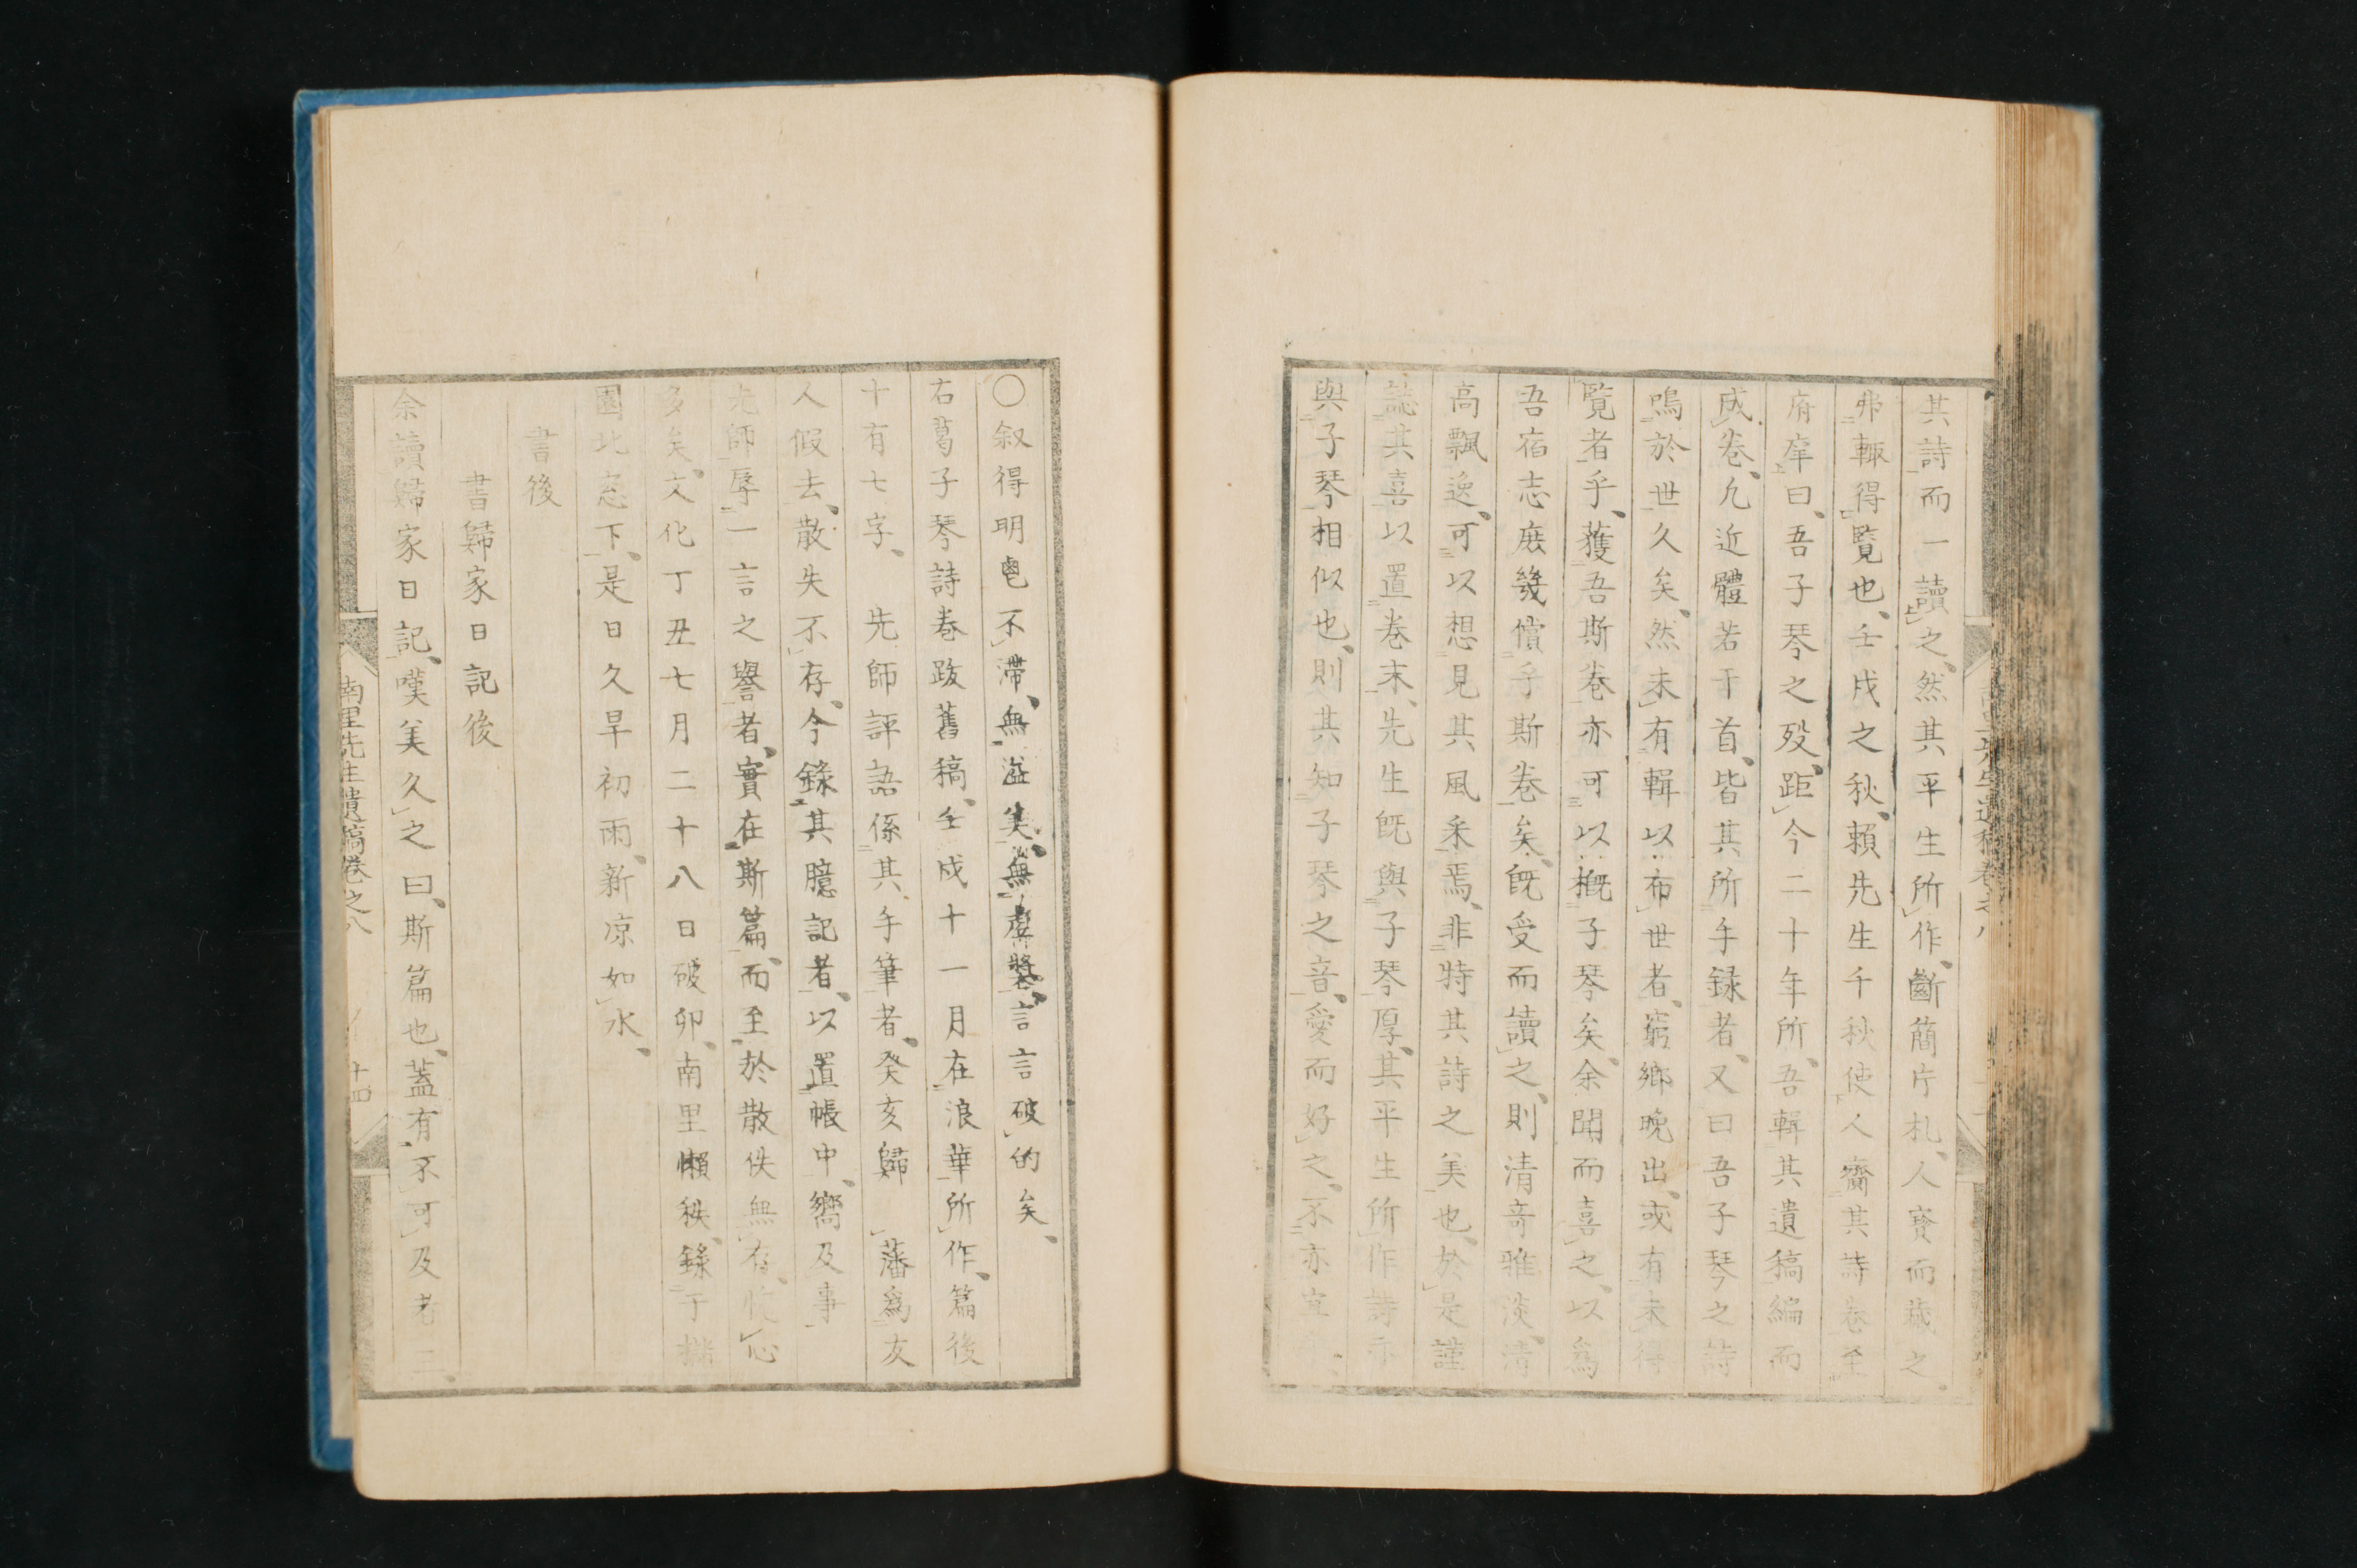 其詩而一讀之、然其平生所作、斷簡片札、人寶而藏之
弗輙得覽也、壬戌之秋、賴先生千秋使人齎其詩卷至
府庠曰、吾子琴之歿、距今二十年所、吾輯其遺稿編而
成卷、凡近體若干首、皆其所手録者、又曰吾子琴之詩
鳴於世久矣、然未有輯以布世者、窮鄉晩出、或有未得
覽者乎、獲吾斯卷亦可以概子琴矣、余聞而喜之、以爲
吾宿志庶幾償乎斯卷矣、旣受而讀之、則清奇雅淡、清
高飄逸、可以想見其風采焉、非特其詩之美也、於是謹
誌其喜以置卷末、先生旣與子琴厚、其平生所作詩亦
與子琴相似也、則其知子琴之音、愛而好之、不亦宜
〇叙得明鬯不滯、無溢美、無虛奬、言言破的矣、
右葛子琴詩卷跋舊稿、壬戌十一月在浪華所作、篇後
十有七字、先師評語係其手筆者、癸亥歸藩爲友
人假去、散失不存、今錄其臆記者、以置帳中、嚮及事
先師辱一言之譽者、實在斯篇、而至於散佚無存、忱心
多矣、文化丁丑七月二十八日破卯、南里懶秩、錄于
園北窓下、是日久旱初雨、新凉如水、
書後
書歸家日記後
余讀歸家日記、嘆美久之曰、斯篇也、蓋有不可及者二
南里先生遺稿卷之八
十四